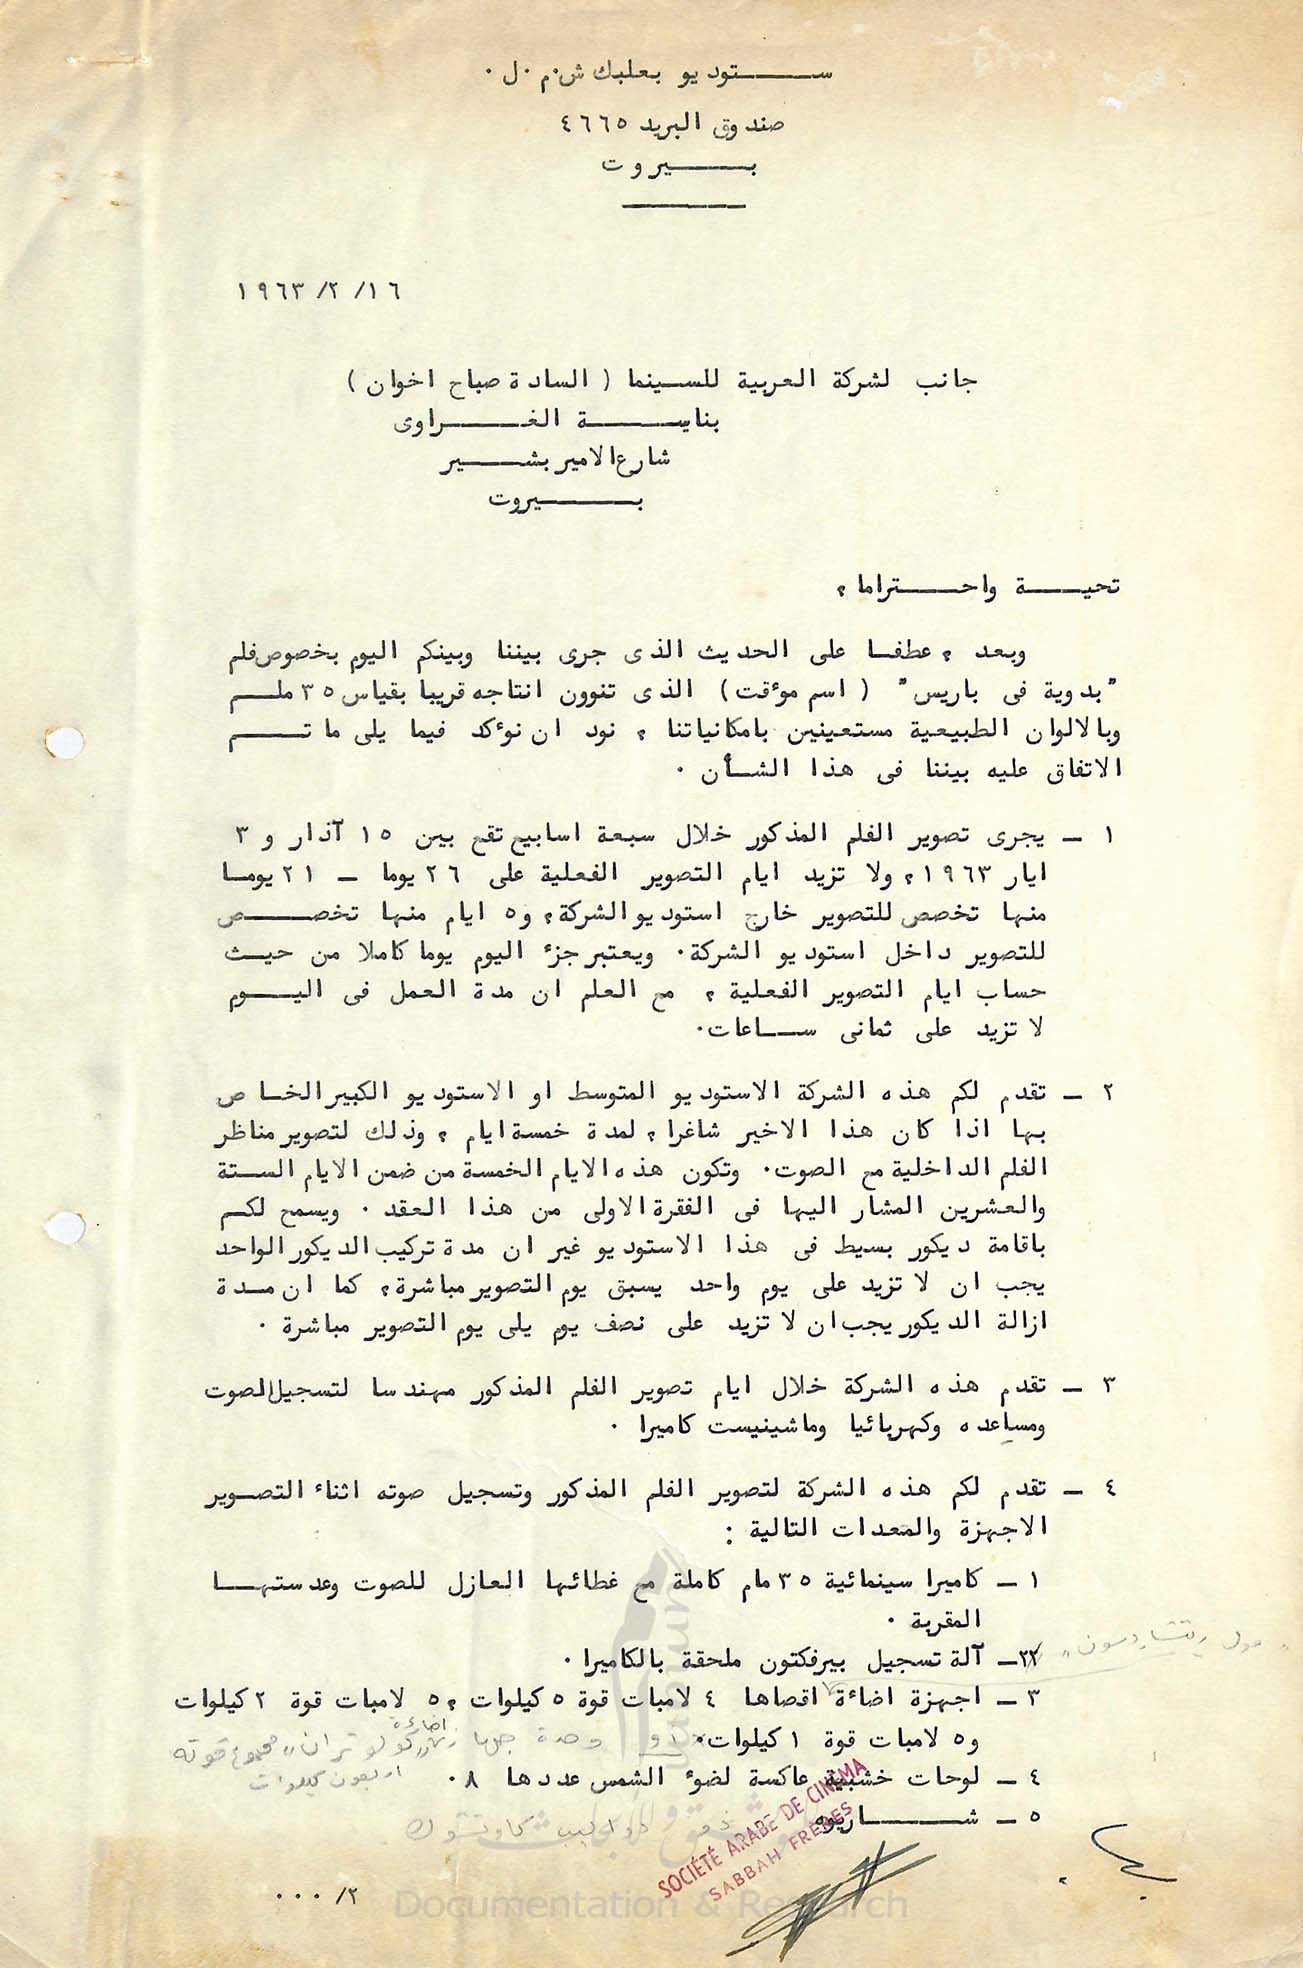 ستوديو بعلبك ش.م.ل.
صندوق البريد ٤٦٦٥
بيروت
١٦/ ٢/ ١٩٦٣
جانب لشركة العربية للسينما ( السادة صباح اخوان )
بناية الغراوى
شارع الامير بشير
بيروت
تحية واحتراما ،
وبعد ، عطفا على الحديث الذى جرى بيننا وبينكم اليوم بخصوص فلم
"بدوية فى باريس" ( اسم موٴقت ) الذى تنوون انتاجه قريبا بقياس ٣٥ ملم
وبالالوان الطبيعية مستعينين بامكانياتنا ، نود ان نوٴكد فيما يلى ما تم
الاتفاق عليه بيننا فى هذا الشأن .
١ - يجرى تصوير الفلم المذكور خلال سبعة اسابيع تقع بين ١٥ آذار و ٣
ايار ١٩٦٣، ولا تزيد ايام التصوير الفعلية على ٢٦ يوما - ٢١ يوما
منها تخصص للتصوير خارج استوديو الشركة، و٥ ايام منها تخصص
للتصوير داخل استوديو الشركة. ويعتبر جزء اليوم يوما كاملا من حيث
حساب ايام التصوير الفعلية ، مع العلم ان مدة العمل فى اليوم
لا تزيد على ثمانى ساعات.
٢ - تقدم لكم هذه الشركة الاستوديو المتوسط او الاستوديو الكبير الخاص
بها اذا كان هذا الاخير شاغرا ، لمدة خمسة ايام ، وذلك لتصوير مناظر
الفلم الداخلية مع الصوت. وتكون هذه الايام الخمسة من ضمن الايام الستة
والعشرين المشار اليها فى الفقرة الاولى من هذا العقد . ويسمح لكم
باقامة ديكور بسيط فى هذا الاستوديو غير ان مدة تركيب الديكور الواحد
يجب ان لا تزيد على يوم واحد يسبق يوم التصوير مباشرة، كما ان مدة
ازالة الديكور يجب ان لا تزيد على نصف يوم يلى يوم التصوير مباشرة .
٣ - تقدم هذه الشركة خلال ايام تصوير الفلم المذكور مهندسا لتسجيل الصوت
ومساعده وكهربائيا وماشينيست كاميرا .
٤ - تقدم لكم هذه الشركة لتصوير الفلم المذكور وتسجيل صوته اثناء التصوير
الاجهزة والمعدات التالية :
١ - كاميرا سينمائية ٣٥ مام كاملة مع غطائها العازل للصوت وعدستها
المقربة .
٢- آلة تسجيل بيرفكتون ملحقة بالكاميرا .
"مول ريتشاردسون"
٣ - اجهزة اضاءة اقصاها ٤ لامبات قوة ٥ كيلوات ،٥ لامبات قوة ٢ كيلوات
و٥ لامبات قوة ١ كيلوات. او وحدة اضاءة "كولوتران" مجموع قوته
اربعون كيلوات
٤ - لوحات خشبية عاكسة لضوء الشمس عددها ٨ .
٥ - شاريوه دواليب كاوتشوك
SOCIÉTÉ ARABE DE CINÉMA
SABBAH FRÈRES
٢/ ...
Documentation & Research